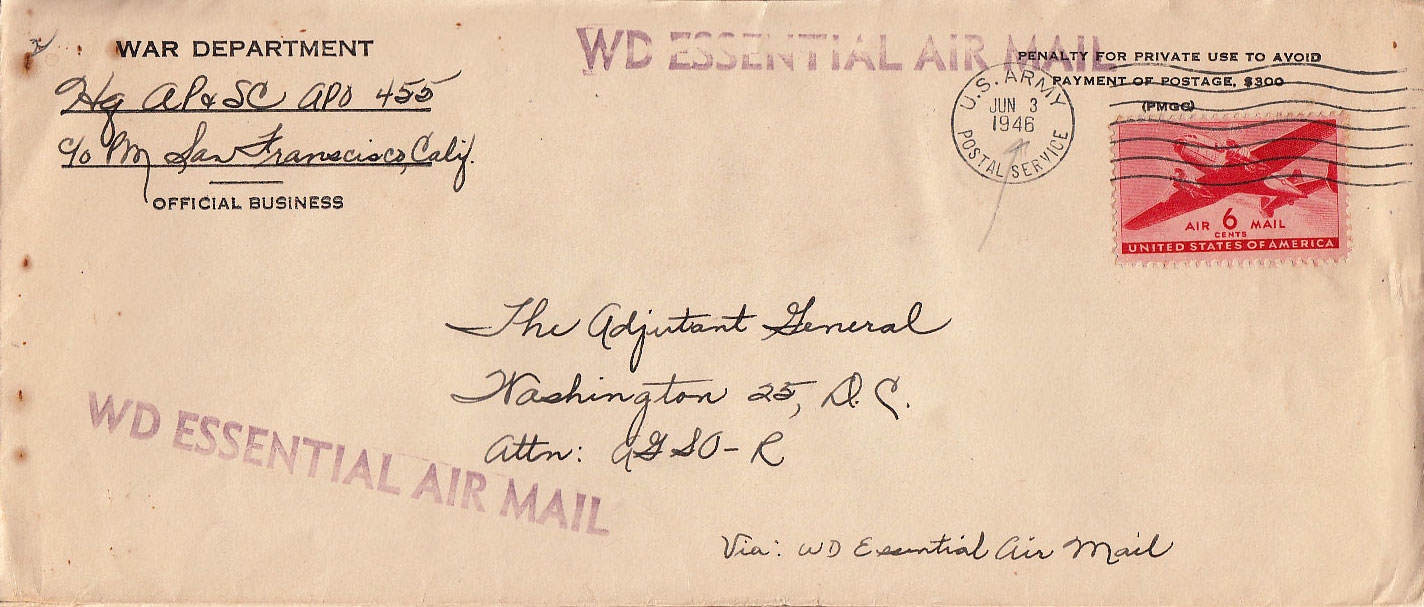 WAR DEPARTMENT
Hq AP & SC APO 455
c/o PM, San Franscisco, Calif.
OFFICIAL BUSINESS
WD ESSENTIAL AIR MAIL
PENALTY FOR PRIVATE USE TO AVOID
PAYMENT OF POSTAGE, $300
(PMGC)
U.S. ARMY
JUN 3
1946
POSTAL SERVICE
AIR 6 MAIL
CENTS
UNITED STATES OF AMERICA
The Adjutant General
Washington 25, D.C.
Attn: AGSO-R
WD ESSENTIAL AIR MAIL
Via: WD Essential Air Mail